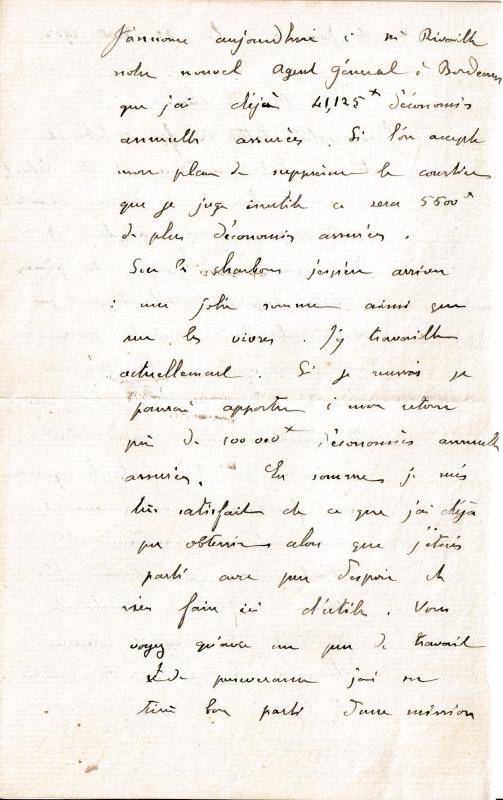 J'annonce aujourd'hui à Mr Rivaille
notre nouvel Agent Général à Bordeaux
que j'ai déjà 41,125 x d'économies
annuelles assurées. Si l'on accepte
mon plan de supprimer le courtier
que je juge inutile ce sera 5500 x
de plus d'économies assurées.
Sur les charbons j'espère arriver
à une jolie somme ainsi que
sur les vivres. J'y travaille
actuellement. Si je réussis je
pourrai apporter à mon retour
près de 100 000 x d'économies annuelles
assurées. En somme je suis
très satisfait de ce que j'ai déjà
pu obtenir alors que j'étais
parti avec peu d'espoir de
rien faire ici d'utile. Vous
voyez qu'avec un peu de travail
& de persévérance j'ai su
tirer bon parti d'une mission